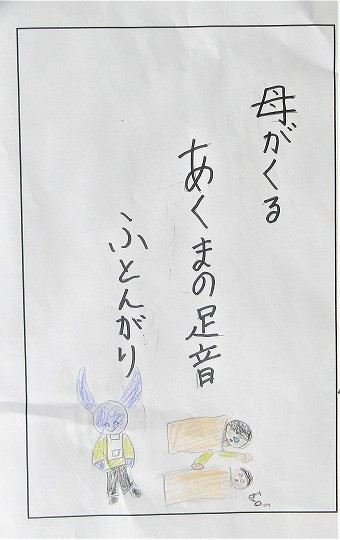 母がくる
あくまの足音
ふとんがり